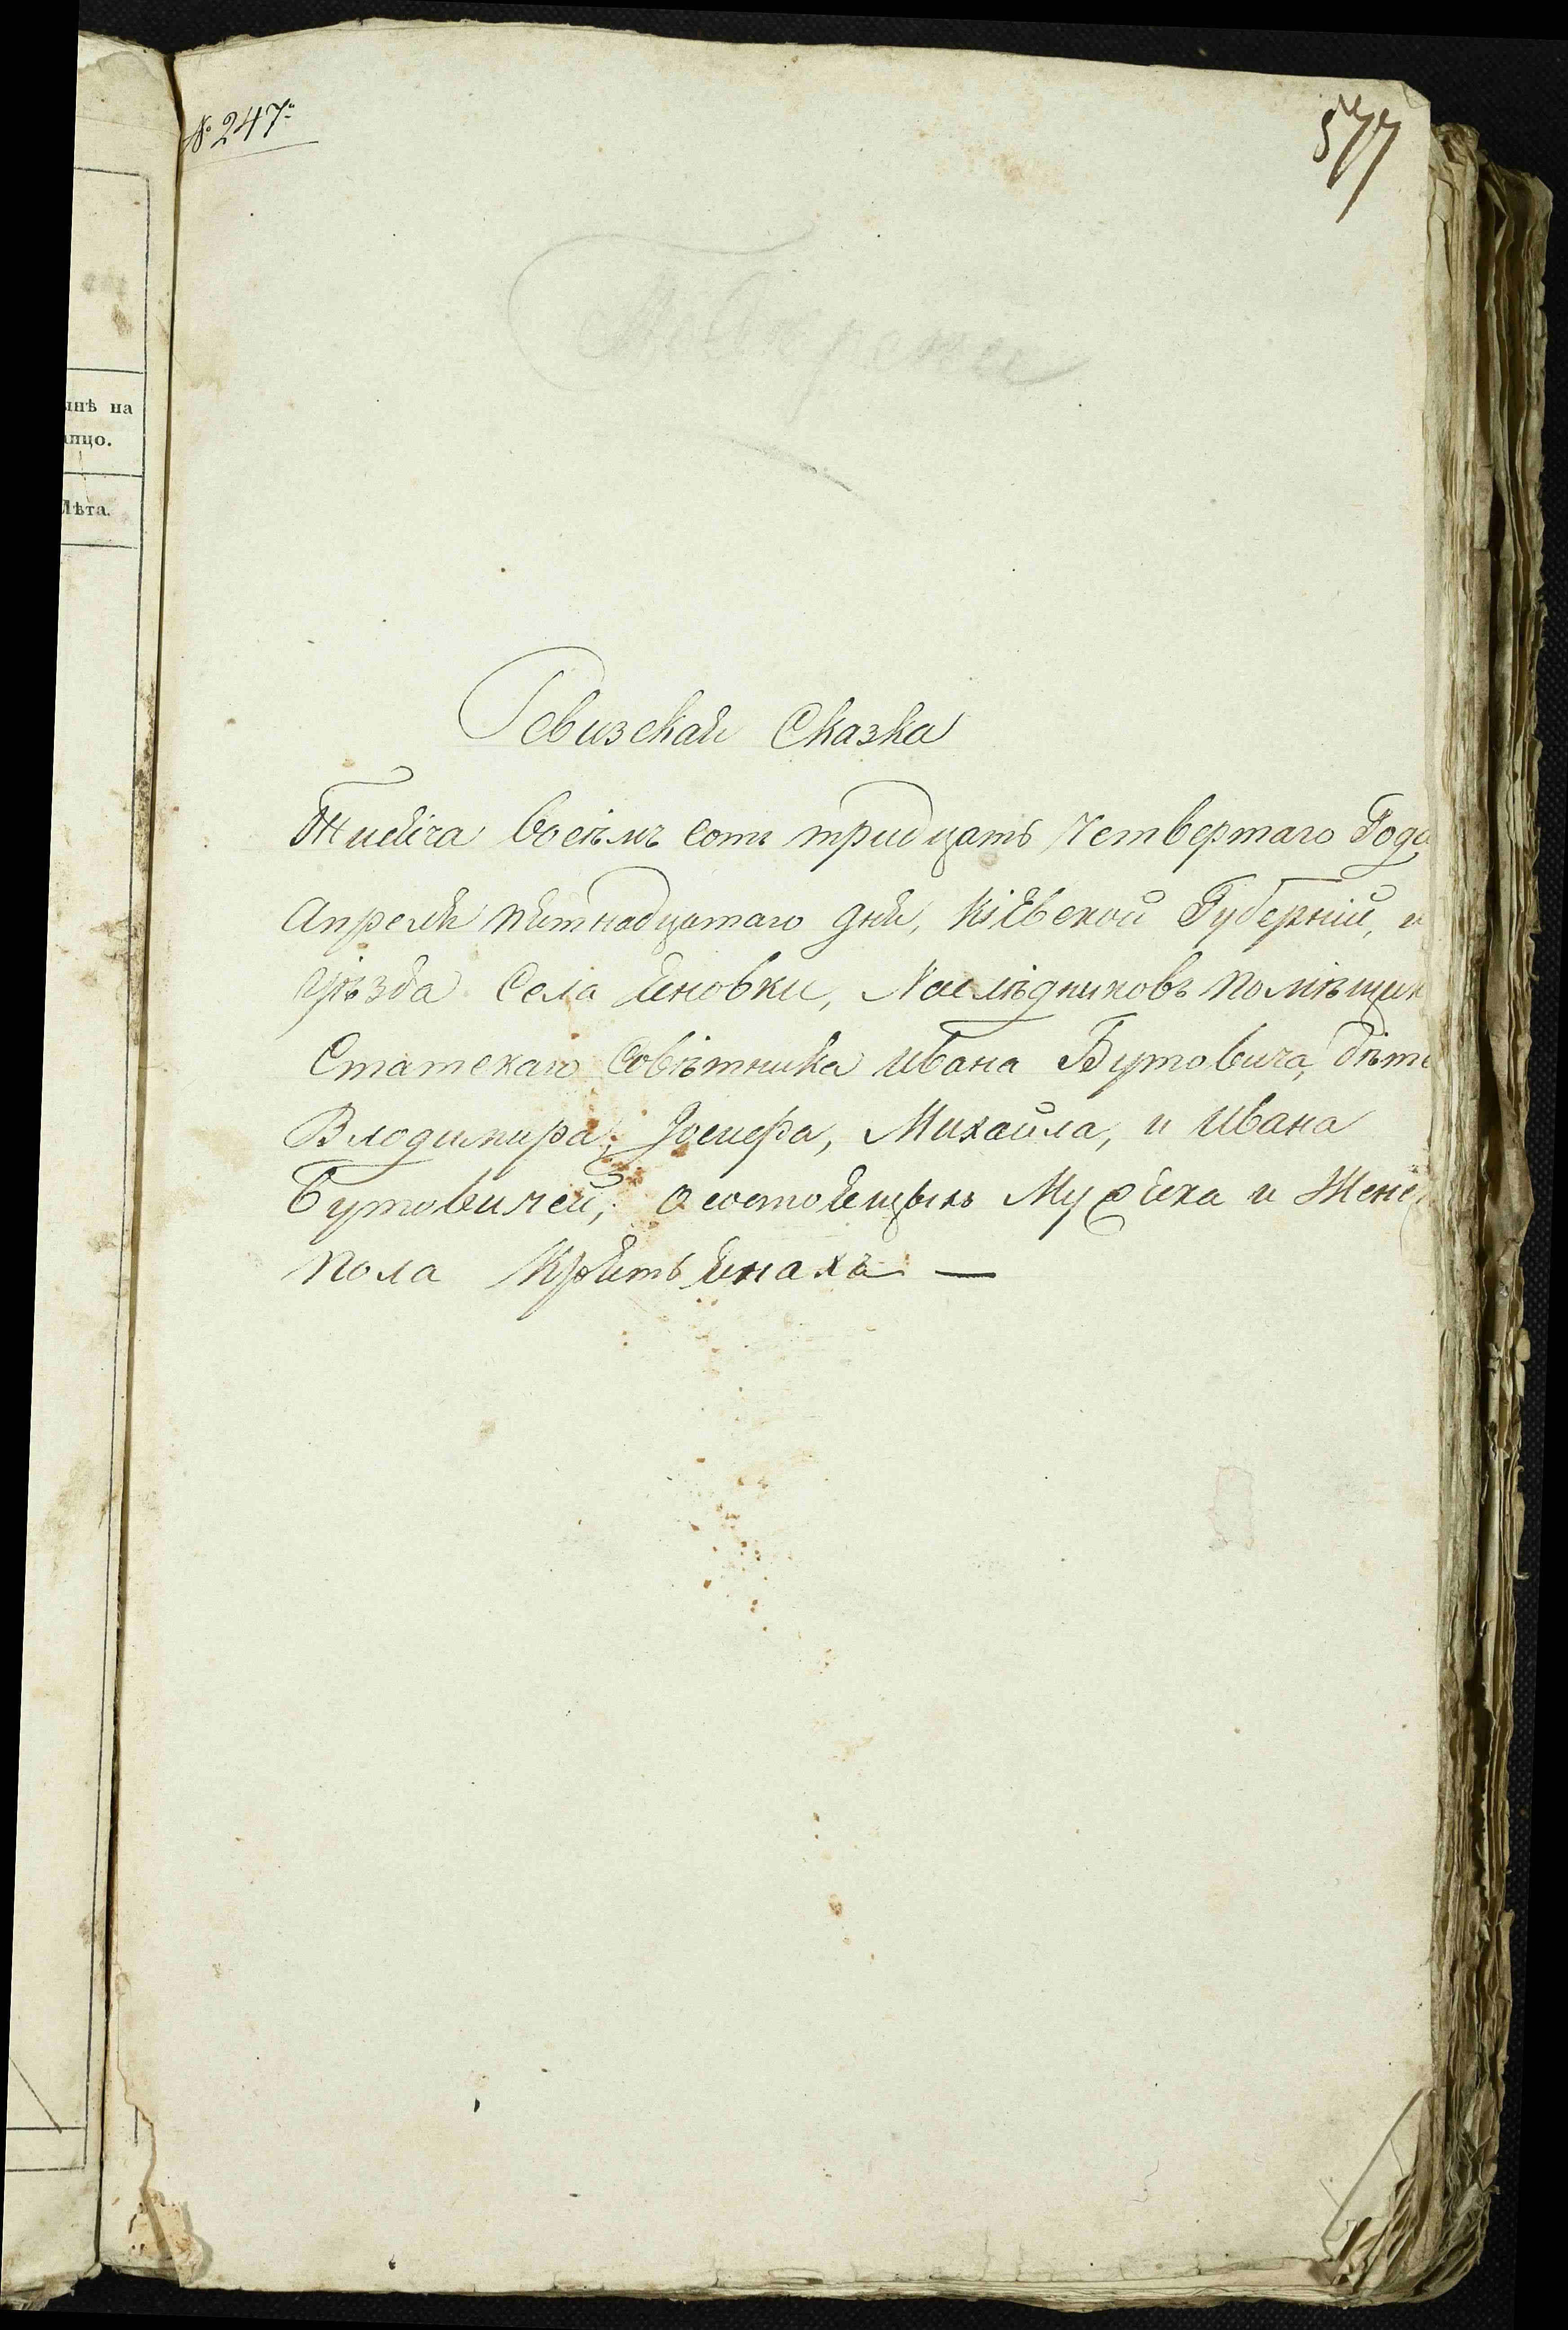 № 247.
577
ынѣ на
лицо.
Лѣта.
Ревизская Сказка
Тисяча восемъ сотъ тридцать четвертаго Года
Апреля пятнадцатаго дня, Кіевской Губерніи, и
уѣзда Села Яновки, Наслѣдниковъ помѣщик
Статскаго Совѣтника Ивана Бутовича, дѣте
Влодимира, Іосифа, Михайла, и Ивана
Бутовичей, о состоящыхъ Му҂ска и Женс
пола Крѣстьянахъ —